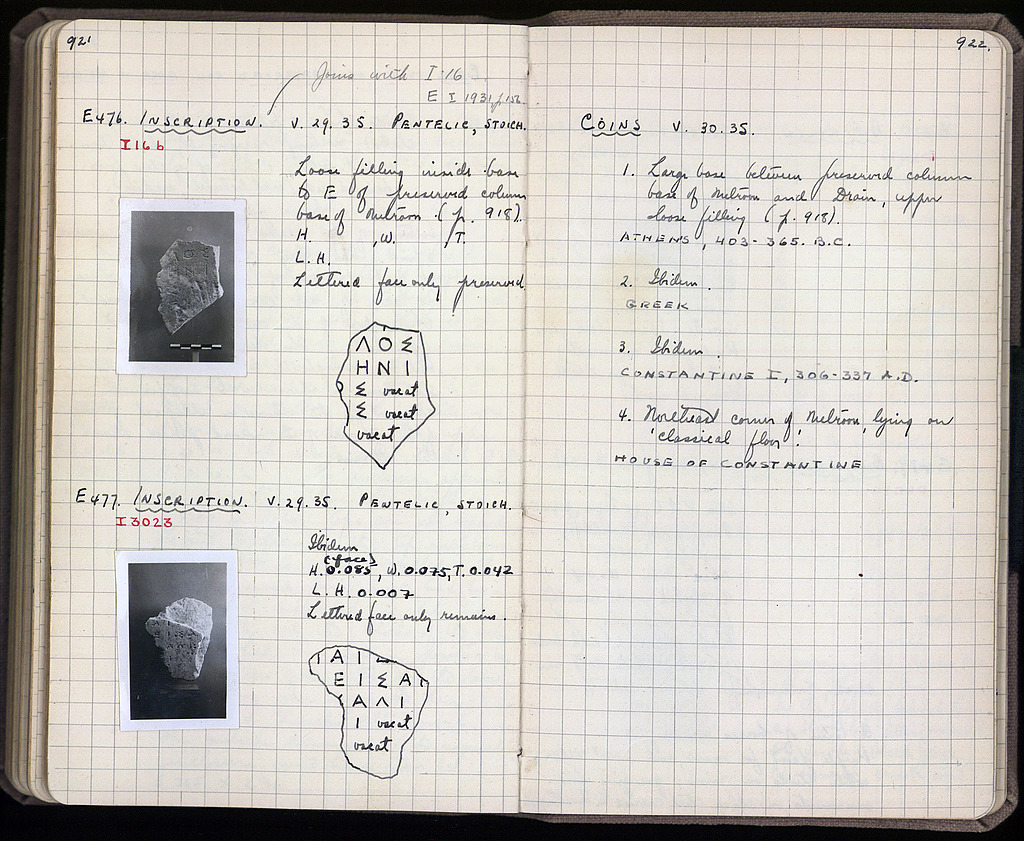 921
Joins with I 16
E I 1931, p. 156.
E 476. INSCRIPTION. V. 29. 35. PENTELIC, STOICH.
I 16 b
Loose filling inside base
to E of preserved column
base of Metroon (p. 918).
H. , W. , T.
L. H.
Lettered face only preserved.
Λ Ο Σ
Η Ν Ι
Σ vacat
Σ vacat
vacat
E 477. INSCRIPTION. V. 29. 35. PENTELIC, STOICH.
I 3023
Ibidem
(face)
H. 0.085, W. 0.075, T. 0.042
L. H. 0.007
Lettered face only remains.
Ι Α Ι
Ε Ι Σ Α Τ
Α Λ Ι
Ι vacat
vacat
922.
COINS V. 30. 35.
1. Large base between preserved column
base of Metroon and Drain, upper
loose filling (p. 918).
ATHENS, 403-365. B.C.
2. Ibidem.
GREEK
3. Ibidem.
CONSTANTINE I, 306-337 A.D.
4. Northeast corner of Metroon, lying on
'classical floor'.
HOUSE OF CONSTANTINE